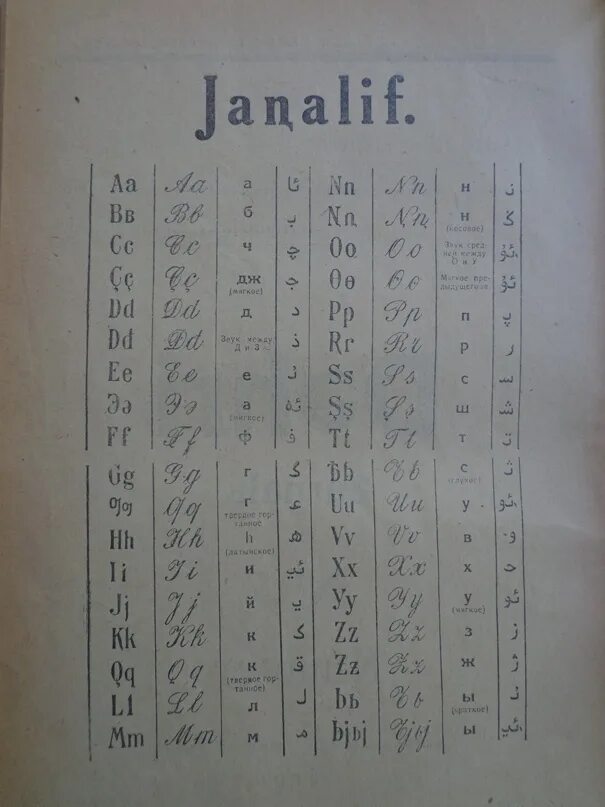 Jaꞑalif.
Aa Aa а ئا Nn Nn н ن
Bв Bв б ب Ꞑꞑ Ꞑꞑ н (носовое) ڭ
Cc Cc ч چ Oo Oo Звук средней между О и У ئۇ
Çç Çç дж (мягкое) ج Ɵɵ Ɵɵ Мягкое предыдущего ئۇ
Dd Dd д د Pp Pp п پ
Đd Đd Звук между Д и З ذ Rr Rr р ر
Ee Ee е Ss Ss с س
Əə Əə а (мягкое) ئە Şş Şş ш ش
Ff Ff ф ف Tt Tt т ت
Gg Gg г گ с (глухое) ث
Ƣƣ Ƣƣ г твердое гортанное ع Uu Uu у ئو
Hh Hh h (латынское) ھ Vv Vv в و
Ii Ii и ئی Xx Xx х ح
Jj Jj й ی Yy Yy у (мягкое) ئو
Kk Kk к ک Zz Zz з ز
Qq Qq к (твердое гортанное) ق Ƶƶ Ƶƶ ж ژ
Ll Ll л ل Ьь Ьь ы (краткое)
Mm Mm м م Ьjьj Ьjьj ы ئی